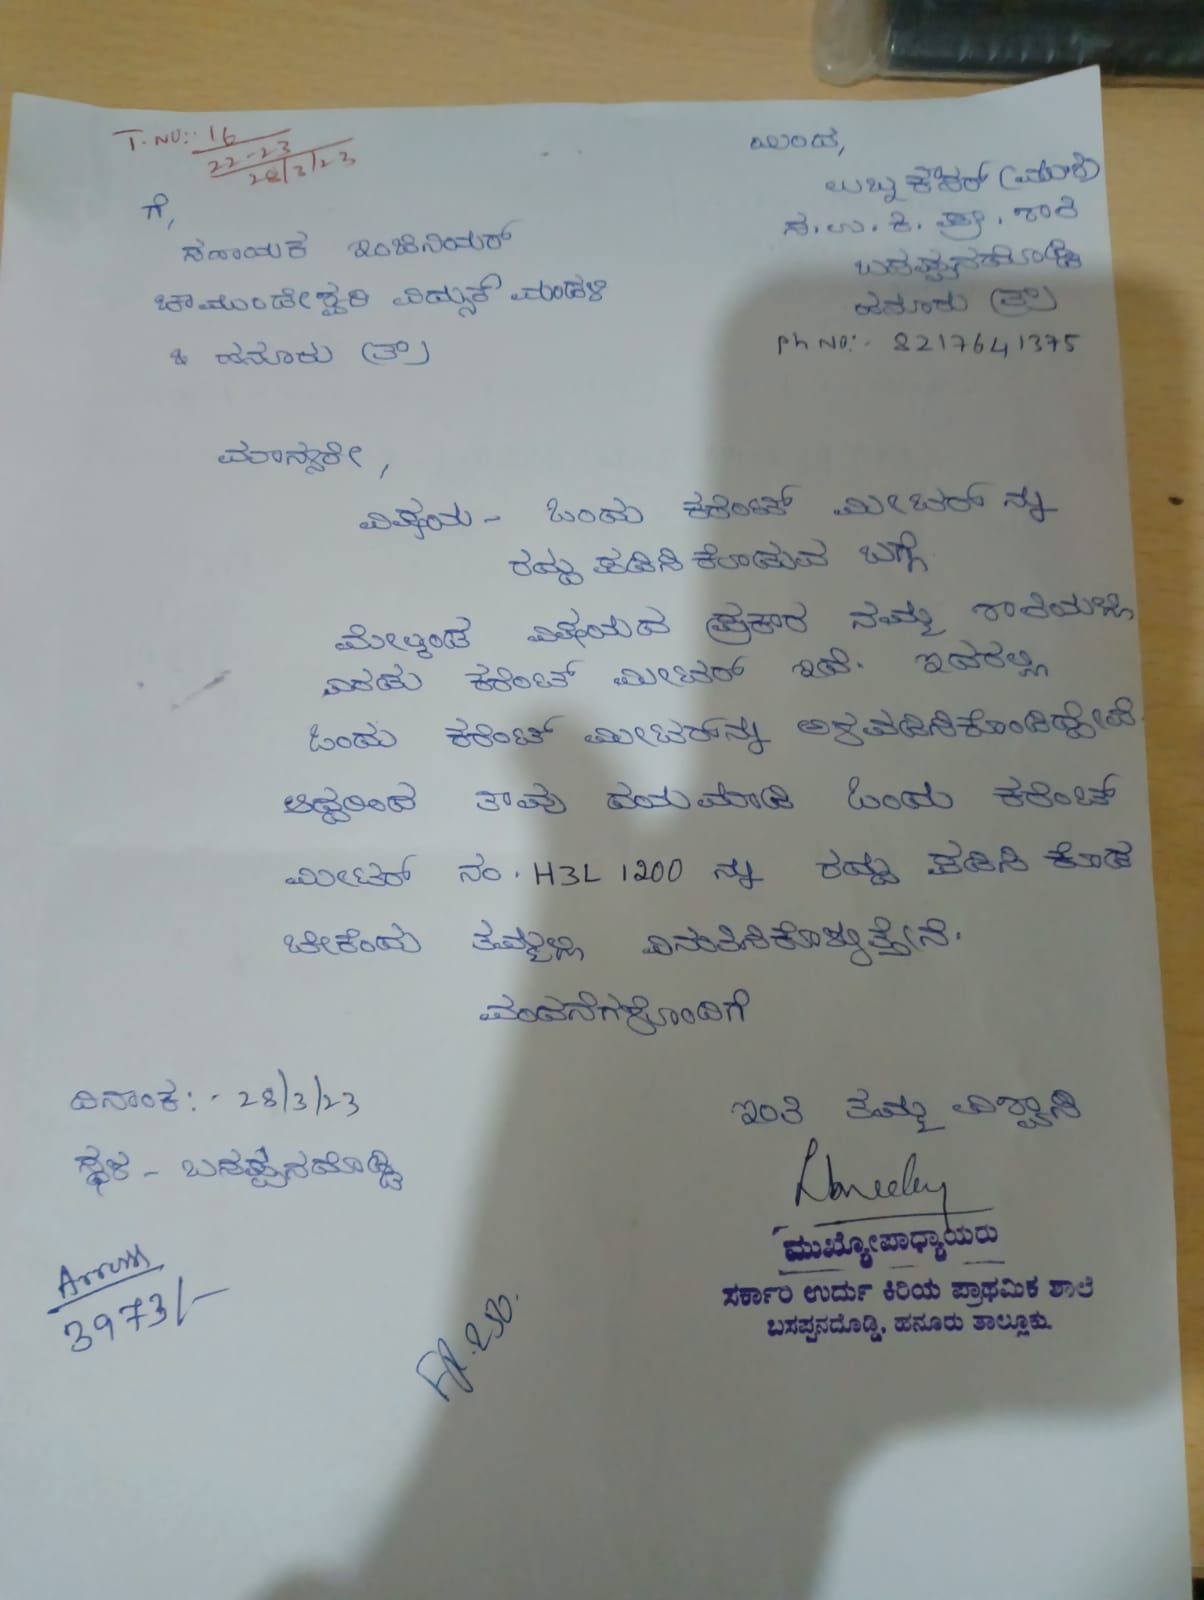 T.NO:- 16
22-23
28/3/23
ಯಿಂದ,
ಲುಬ್ನ ಕೌಸರ್ (ಮುಶಿ)
ಸ.ಉ.ಕಿ.ಪ್ರಾ.ಶಾಲೆ
ಬಸಪ್ಪನದೊಡ್ಡಿ
ಹನೂರು (ತಾ)
Ph NO:- 8217641375
ಗೆ,
ಸಹಾಯಕ ಇಂಜಿನಿಯರ್
ಚಾಮುಂಡೇಶ್ವರಿ ವಿದ್ಯುತ್ ಮಂಡಳಿ
ಹನೂರು (ತಾ)
ಮಾನ್ಯರೇ,
ವಿಷಯ - ಒಂದು ಕರೆಂಟ್ ಮೀಟರ್ ನ್ನು
ರದ್ದು ಪಡಿಸಿ ಕೊಡುವ ಬಗ್ಗೆ
ಮೇಲ್ಕಂಡ ವಿಷಯದ ಪ್ರಕಾರ ನಮ್ಮ ಶಾಲೆಯಲ್ಲಿ
ಎರಡು ಕರೆಂಟ್ ಮೀಟರ್ ಇದೆ. ಇದರಲ್ಲಿ
ಒಂದು ಕರೆಂಟ್ ಮೀಟರ್‌ನ್ನು ಅಳವಡಿಸಿಕೊಂಡಿದ್ದೇವೆ.
ಆದ್ದರಿಂದ ತಾವು ದಯಮಾಡಿ ಒಂದು ಕರೆಂಟ್
ಮೀಟರ್ ನಂ. H3L 1200 ನ್ನು ರದ್ದು ಪಡಿಸಿ ಕೊಡ
ಬೇಕೆಂದು ತಮ್ಮಲ್ಲಿ ವಿನಂತಿಸಿಕೊಳ್ಳುತ್ತೇನೆ.
ವಂದನೆಗಳೊಂದಿಗೆ
ದಿನಾಂಕ:- 28/3/23
ಸ್ಥಳ - ಬಸಪ್ಪನದೊಡ್ಡಿ
ಇಂತಿ ತಮ್ಮ ವಿಶ್ವಾಸಿ
ಮುಖ್ಯೋಪಾಧ್ಯಾಯರು
ಸರ್ಕಾರಿ ಉರ್ದು ಕಿರಿಯ ಪ್ರಾಥಮಿಕ ಶಾಲೆ
ಬಸಪ್ಪನದೊಡ್ಡಿ, ಹನೂರು ತಾಲ್ಲೂಕು.
3973/-